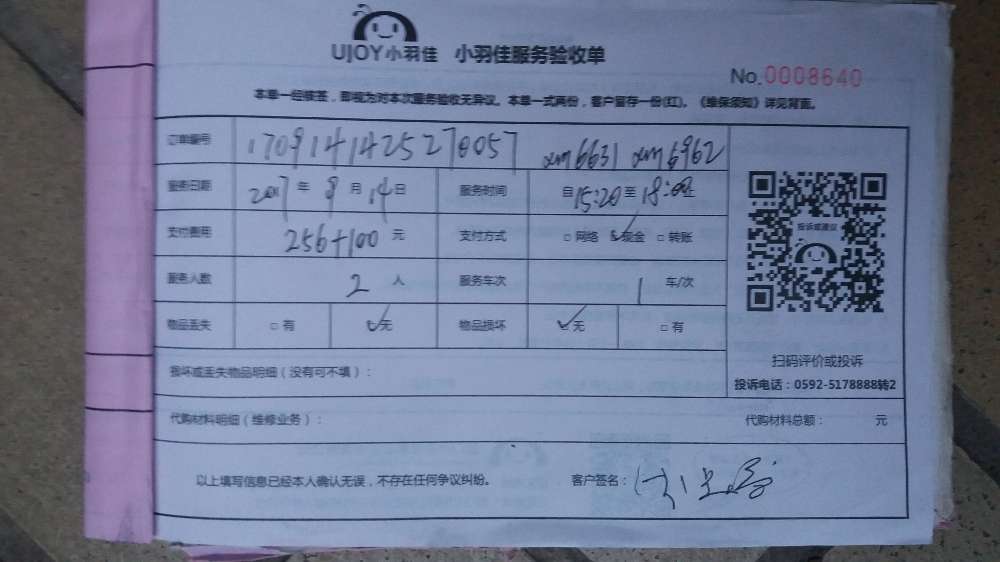 UJOY小羽佳 小羽佳服务验收单
No.0008640
本单一经核签，即视为对本次服务验收无异议。本单一式两份，客户留存一份(红)。《维保须知》详见背面。
订单编号 1709141425270057 xm6631 xm6962
服务日期 2017年9月14日 服务时间 自15:20至18:00止
支付费用 256+100元 支付方式 □网络 ☑现金 □转账
投诉或建议
服务人数 2人 服务车次 1车/次
物品丢失 □有 ☑无 物品损坏 ☑无 □有
扫码评价或投诉
损坏或丢失物品明细（没有可不填）：
投诉电话：0592-5178888转2
代购材料明细（维修业务）： 代购材料总额： 元
以上填写信息已经本人确认无误，不存在任何争议纠纷。 客户签名：